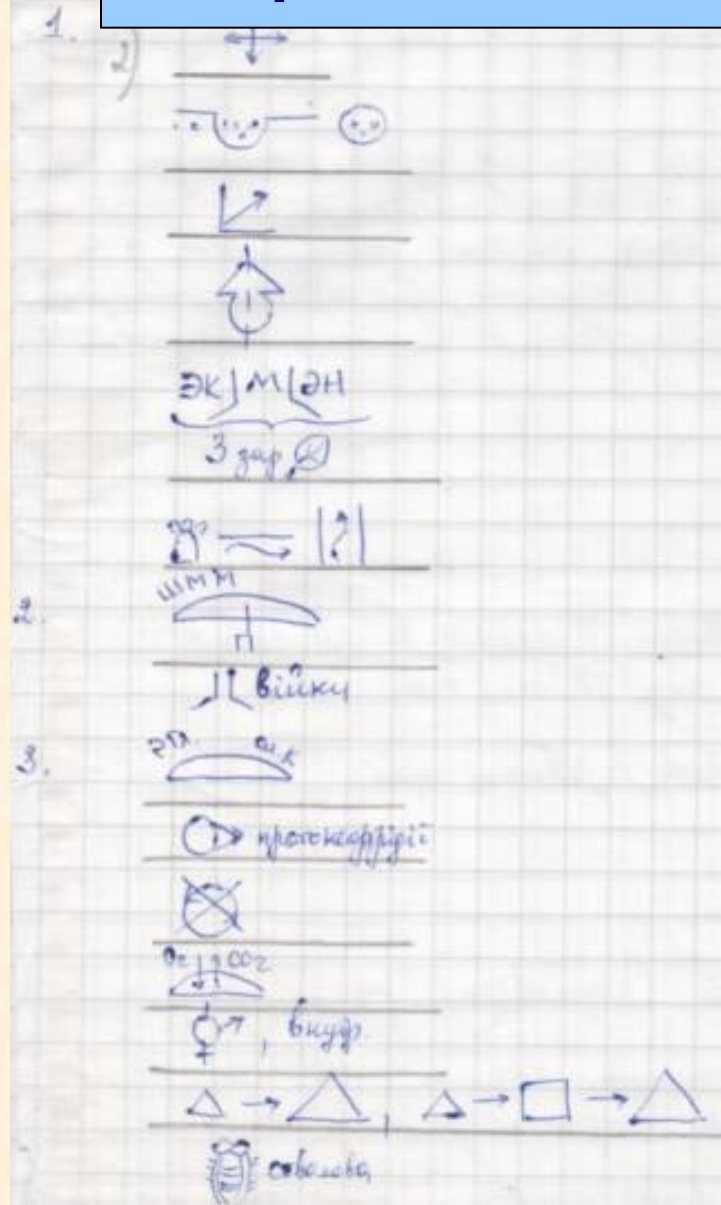 1.
2)
ЭК М ЭН
3 зар
2.
ШММ
П
війки
3.
протонефридії
O2 CO2
, внутр.